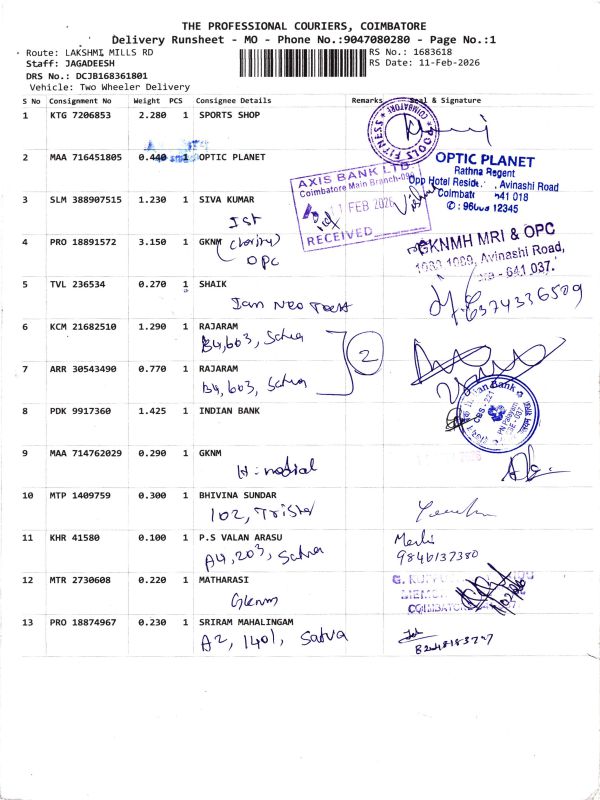 THE PROFESSIONAL COURIERS, COIMBATORE
Delivery Runsheet - MO - Phone No.:9047080280 - Page No.:1
Route: LAKSHMI MILLS RD
RS No.: 1683618
Staff: JAGADEESH
RS Date: 11-Feb-2026
DRS No.: DCJB168361801
Vehicle: Two Wheeler Delivery
S No Consignment No Weight PCS Consignee Details Remarks Seal & Signature
1 KTG 7206853 2.280 1 SPORTS SHOP
COIMBATORE
POOLS FITNESS
2 MAA 716451805 0.440 1 OPTIC PLANET
OPTIC PLANET
Rathna Regent
Opp Hotel Avinashi Road
Coimbatore 641 018
12345
3 SLM 388907515 1.230 1 SIVA KUMAR
AXIS BANK LTD
Coimbatore Main Branch
FEB 2026
RECEIVED
4 PRO 18891572 3.150 1 GKNM
OPC
GKNMH MRI & OPC
Avinashi Road,
641 037.
5 TVL 236534 0.270 1 SHAIK
6374336509
6 KCM 21682510 1.290 1 RAJARAM
B4,603, Satva
2
7 ARR 30543490 0.770 1 RAJARAM
B4,603, Satva
8 PDK 9917360 1.425 1 INDIAN BANK
9 MAA 714762029 0.290 1 GKNM
10 MTP 1409759 0.300 1 BHIVINA SUNDAR
102,
11 KHR 41580 0.100 1 P.S VALAN ARASU
A4,203, Satva
9846137380
12 MTR 2730608 0.220 1 MATHARASI
Gknm
COIMBATORE
13 PRO 18874967 0.230 1 SRIRAM MAHALINGAM
A2, 1401, Satva